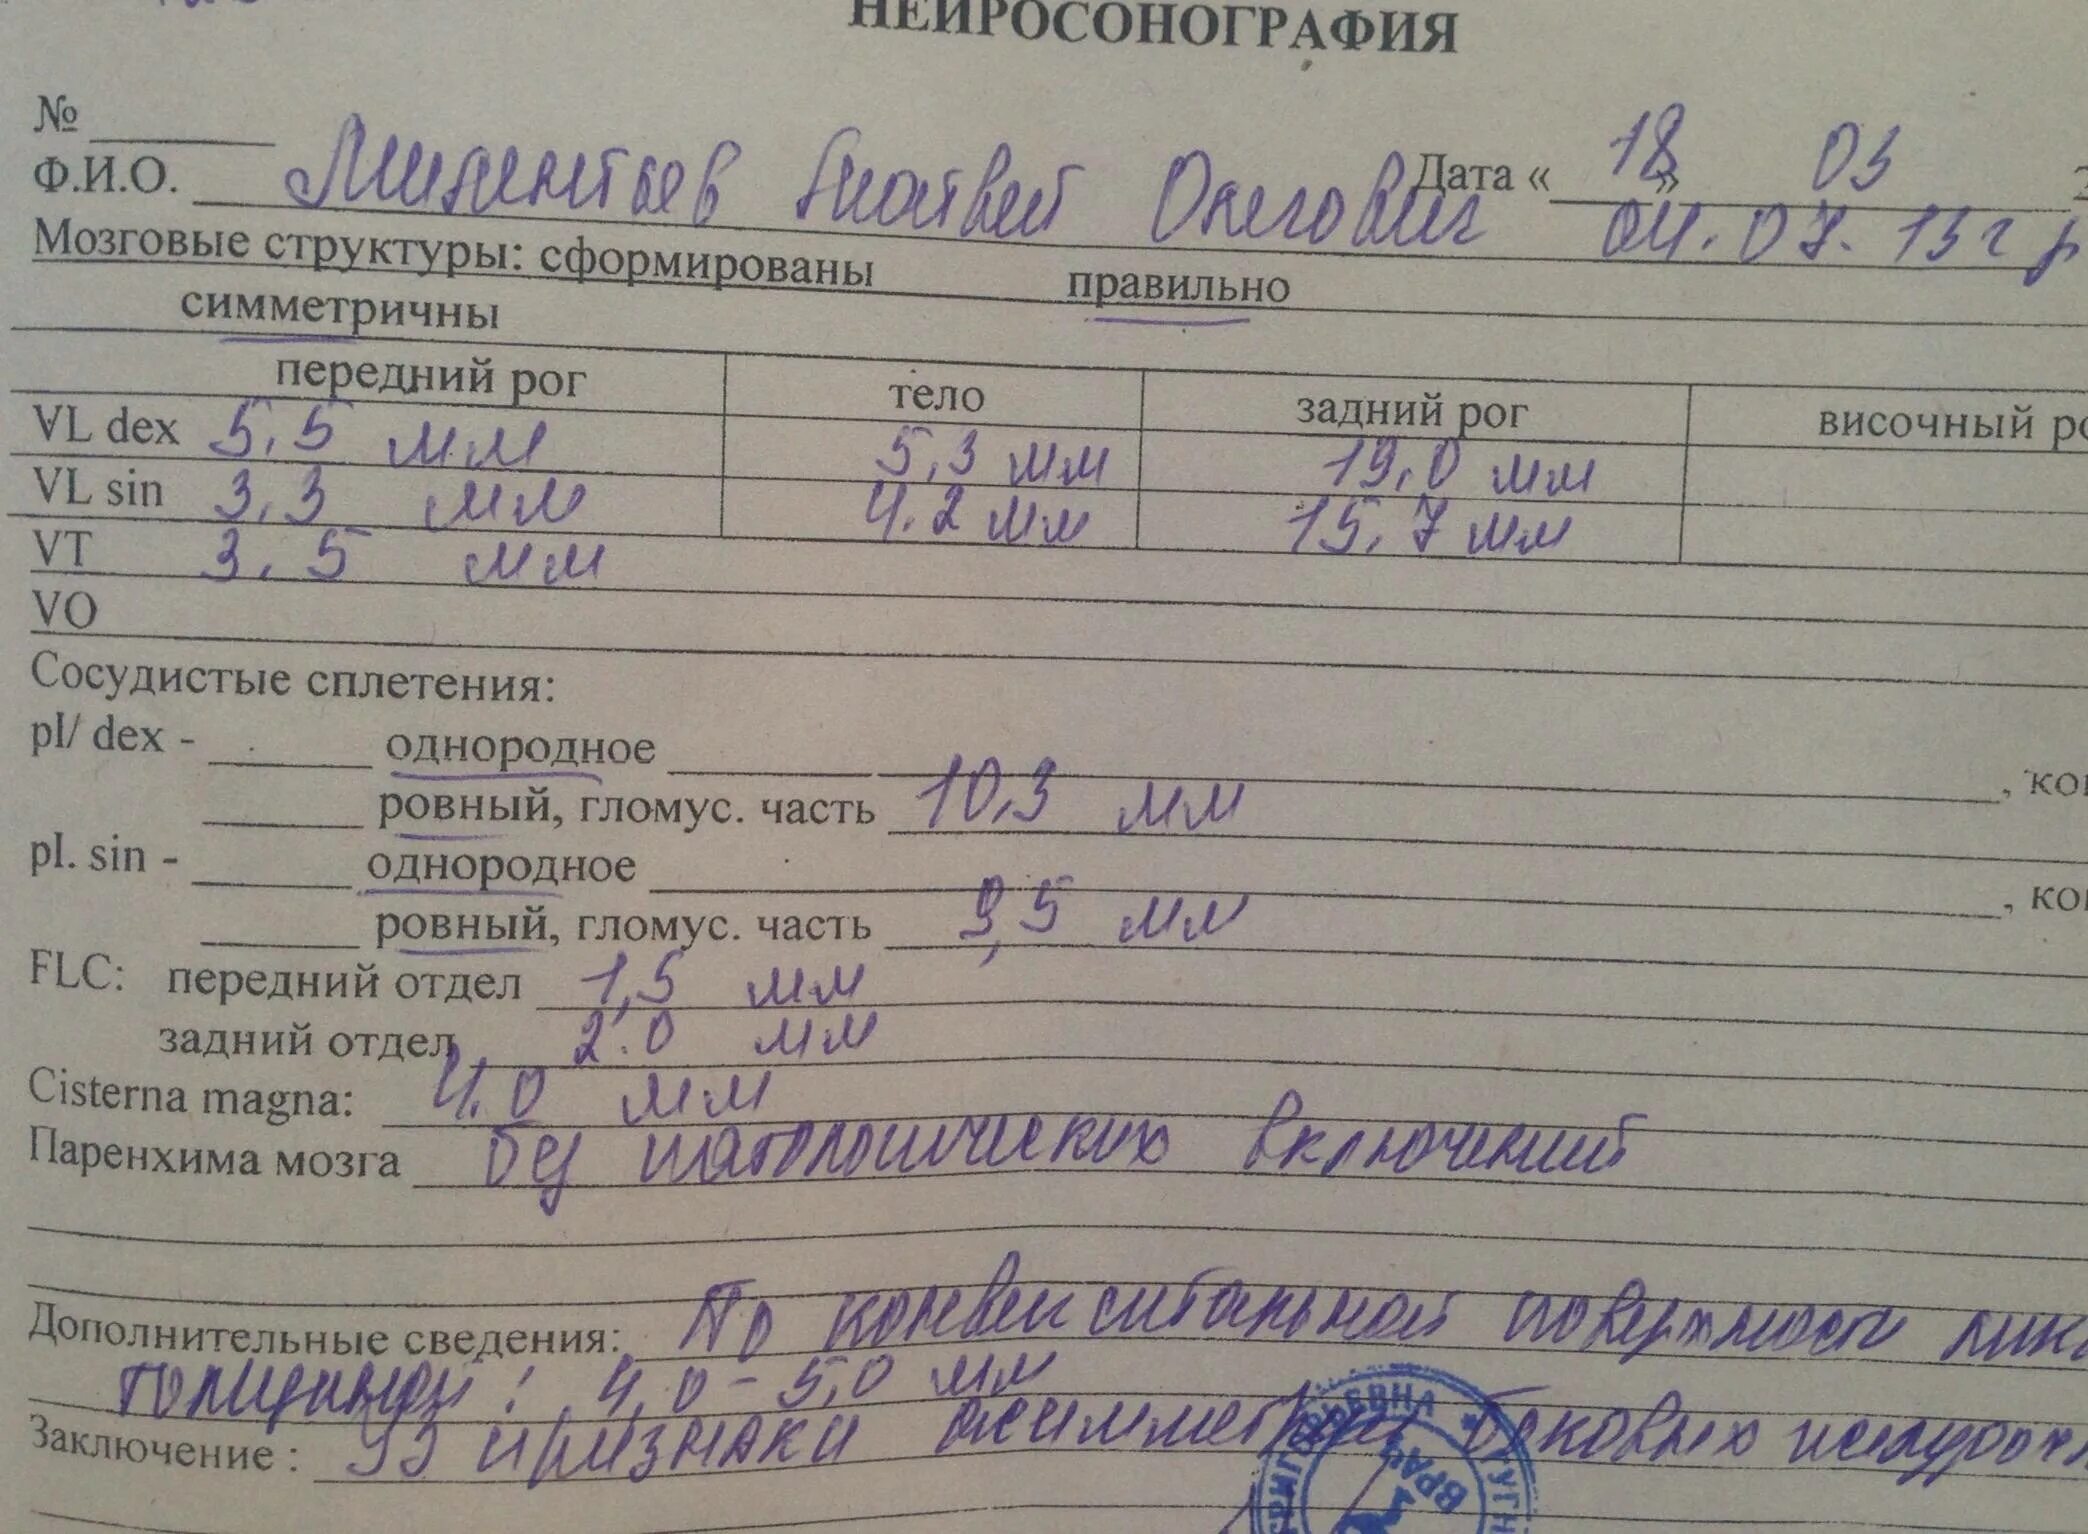 НЕЙРОСОНОГРАФИЯ
№
Ф.И.О. Матвей Олегович Дата « 18 » 03 2
04.07.13 г р
Мозговые структуры: сформированы правильно
симметричны
передний рог тело задний рог височный ро
VL dex 5,5 мм 5,3 мм 19,0 мм
VL sin 3,3 мм 4.2 мм 15,7 мм
VT 3.5 мм
VO
Сосудистые сплетения:
pl/ dex - однородное , кон
ровный, гломус. часть 10,3 мм
pl. sin - однородное , кон
ровный, гломус. часть 9,5 мм
FLC: передний отдел 1,5 мм
задний отдел 2.0 мм
Cisterna magna: 4.0 мм
Паренхима мозга без патологических включений
Дополнительные сведения: По конвекситальной поверхности лик
толщиной: 4,0-5,0 мм
Заключение : УЗ признаки асимметрии боковых желудочк
ВРАЧ